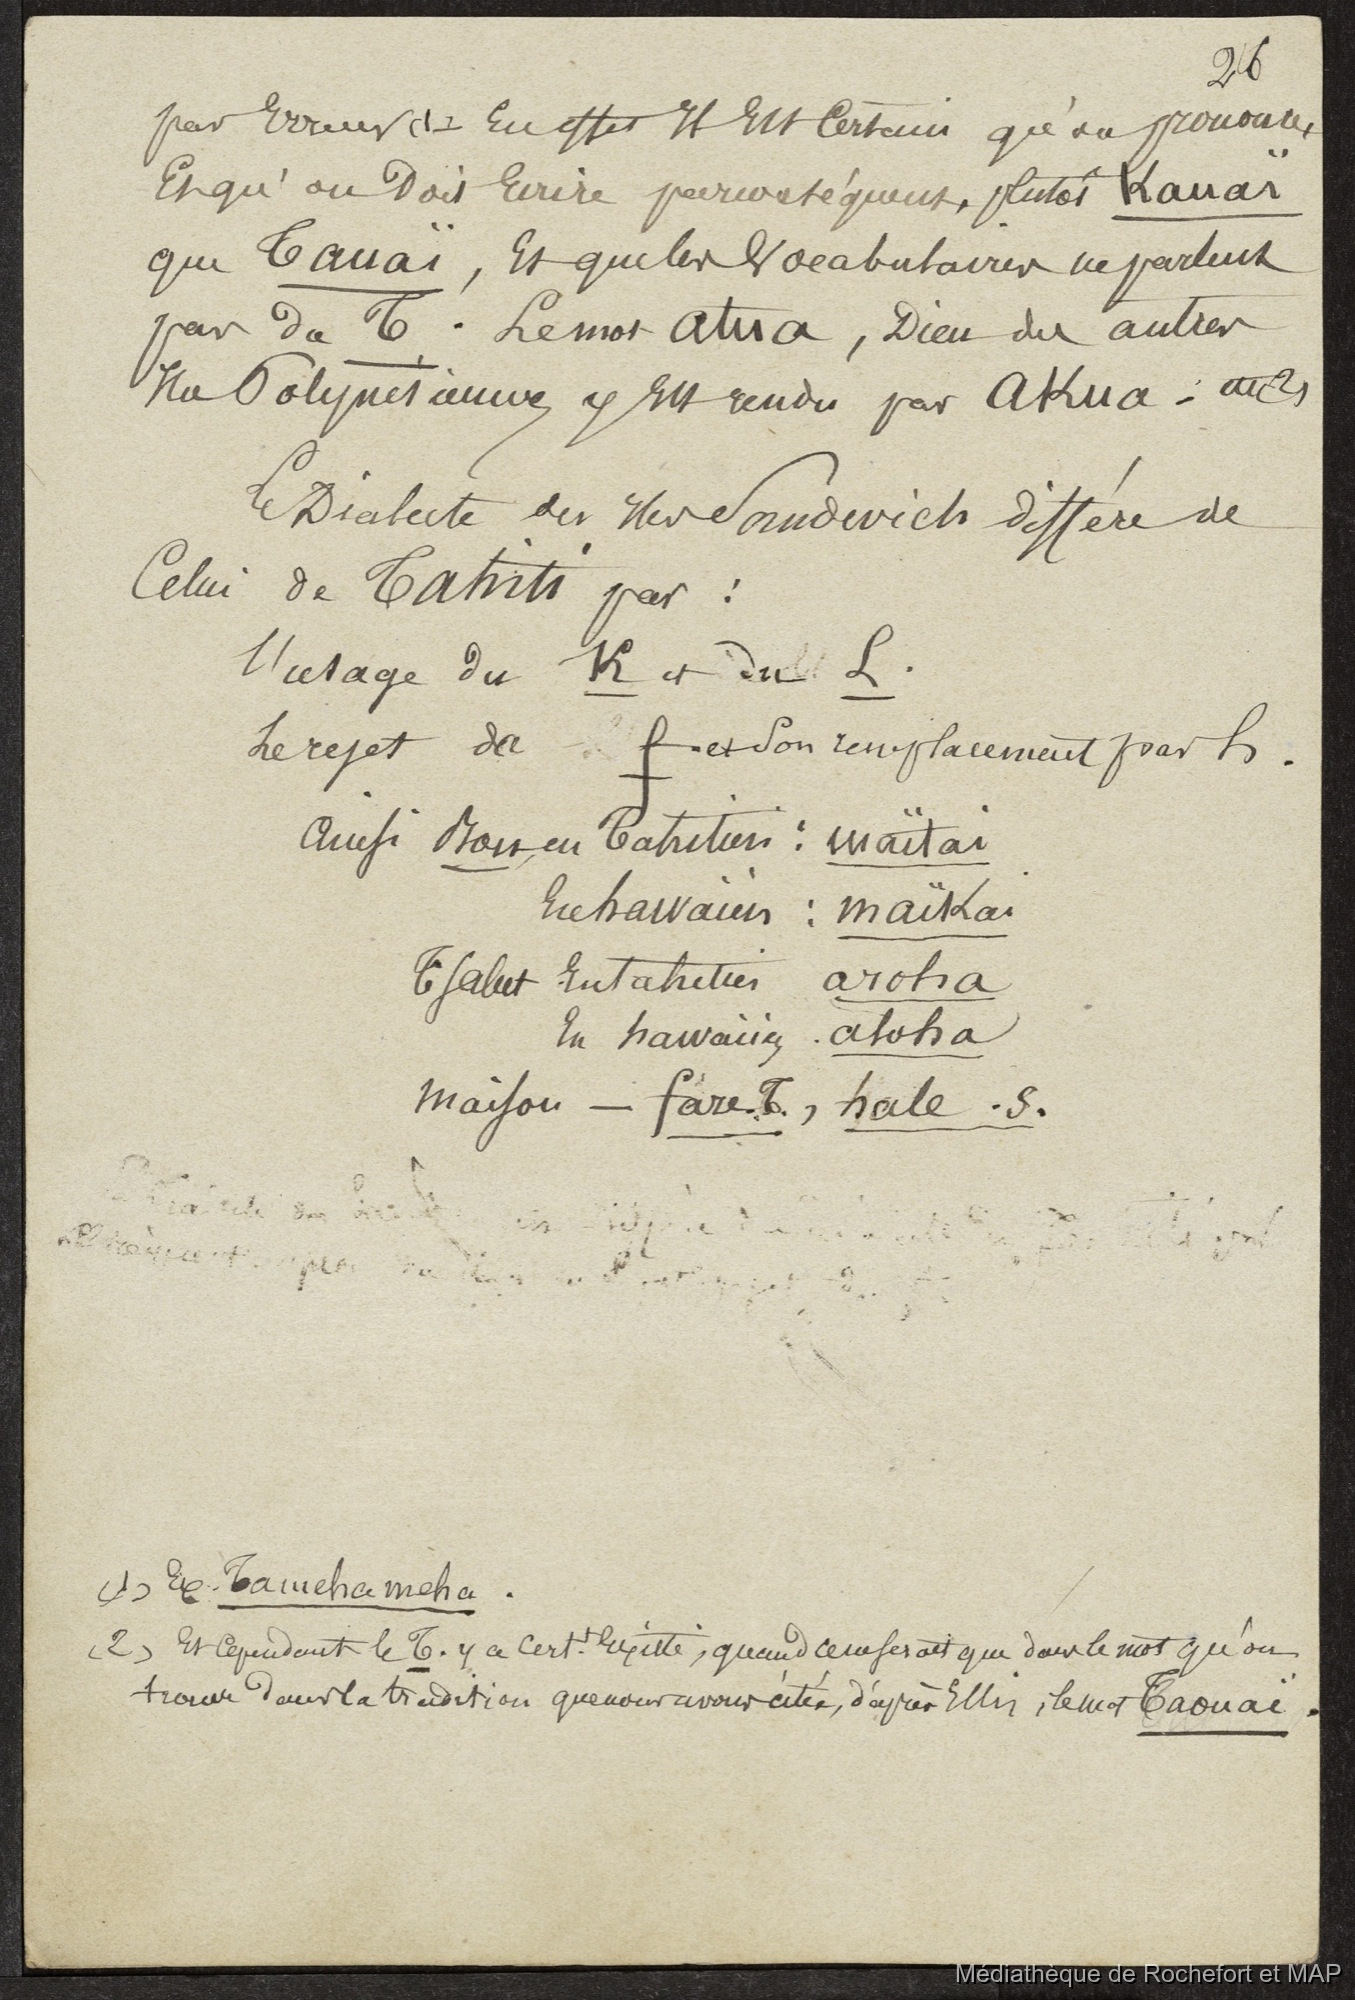 26
par Erreur (1) En effet Il Est Certain qu'on prononce,
Et qu'on Doit Ecrire par conséquent, plutôt Kauaï
que Tauaï, Et que les Vocabulaires ne parlent
pas du T. Le mot atua, Dieu des autres
Iles Polynésiennes y Est rendu par aKua. (2)
Le Dialecte des Iles Sandwich diffère de
Celui de Tahiti par :
l'usage du K et du L.
Le rejet de f et Son remplacement par h.
Ainsi Bon, en Tahitien : maïtai
En hawaiien : maïKai
Salut En tahitien aroha
En hawaiien. aloha
Maison — fare. T., hale. S.
(1) Ex. Tamehameha.
(2) Et Cependant le T. y a Cert.t Existé, quand ce ne serait que dans le mot qu'on
trouve dans la tradition que nous avons citée, d'après Ellis, le mot Taouaï.
Médiathèque de Rochefort et MAP